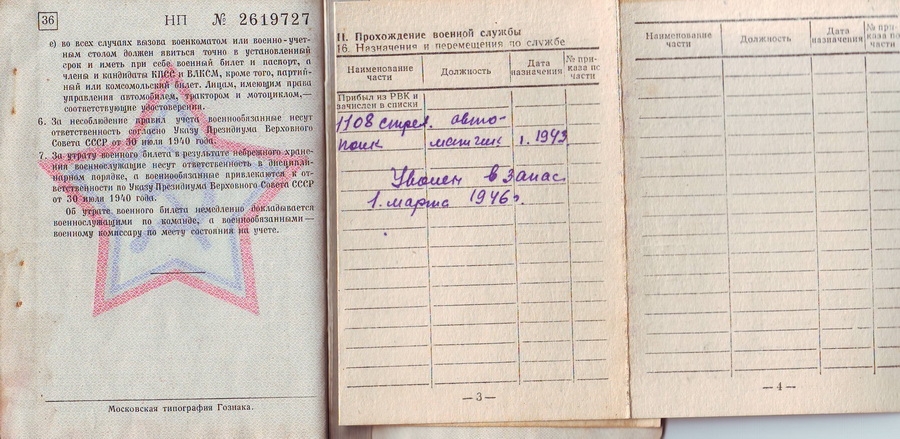 36
НП № 2619727
е) во всех случаях вызова военкоматом или военно-учет-
ным столом должен явиться точно в установленный
срок и иметь при себе военный билет и паспорт, а
члены и кандидаты КПСС и ВЛКСМ, кроме того, партий-
ный или комсомольский билет. Лицам, имеющим права
управления автомобилем, трактором и мотоциклом,—
соответствующие удостоверения.
6. За несоблюдение правил учета военнообязанные несут
ответственность согласно Указу Президиума Верховного
Совета СССР от 30 июля 1940 года.
7. За утрату военного билета в результате небрежного хране-
ния военнослужащие несут ответственность в дисципли-
нарном порядке, а военнообязанные привлекаются к от-
ветственности по Указу Президиума Верховного Совета СССР
от 30 июля 1940 года.
Об утрате военного билета немедленно докладывается
военнослужащими по команде, а военнообязанными —
военному комиссару по месту состояния на учете.
Московская типография Гознака.
II. Прохождение военной службы
16. Назначения и перемещения по службе
Наименование части
Должность
Дата назначения
№ при-каза по части
Прибыл из РВК и
зачислен в списки
1108 стрел. авто-
полк матчик 1943
Уволен в запас
1. марта 1946г.
— 3 —
Наименование части
Должность
Дата назначения
№ при-каза по части
— 4 —